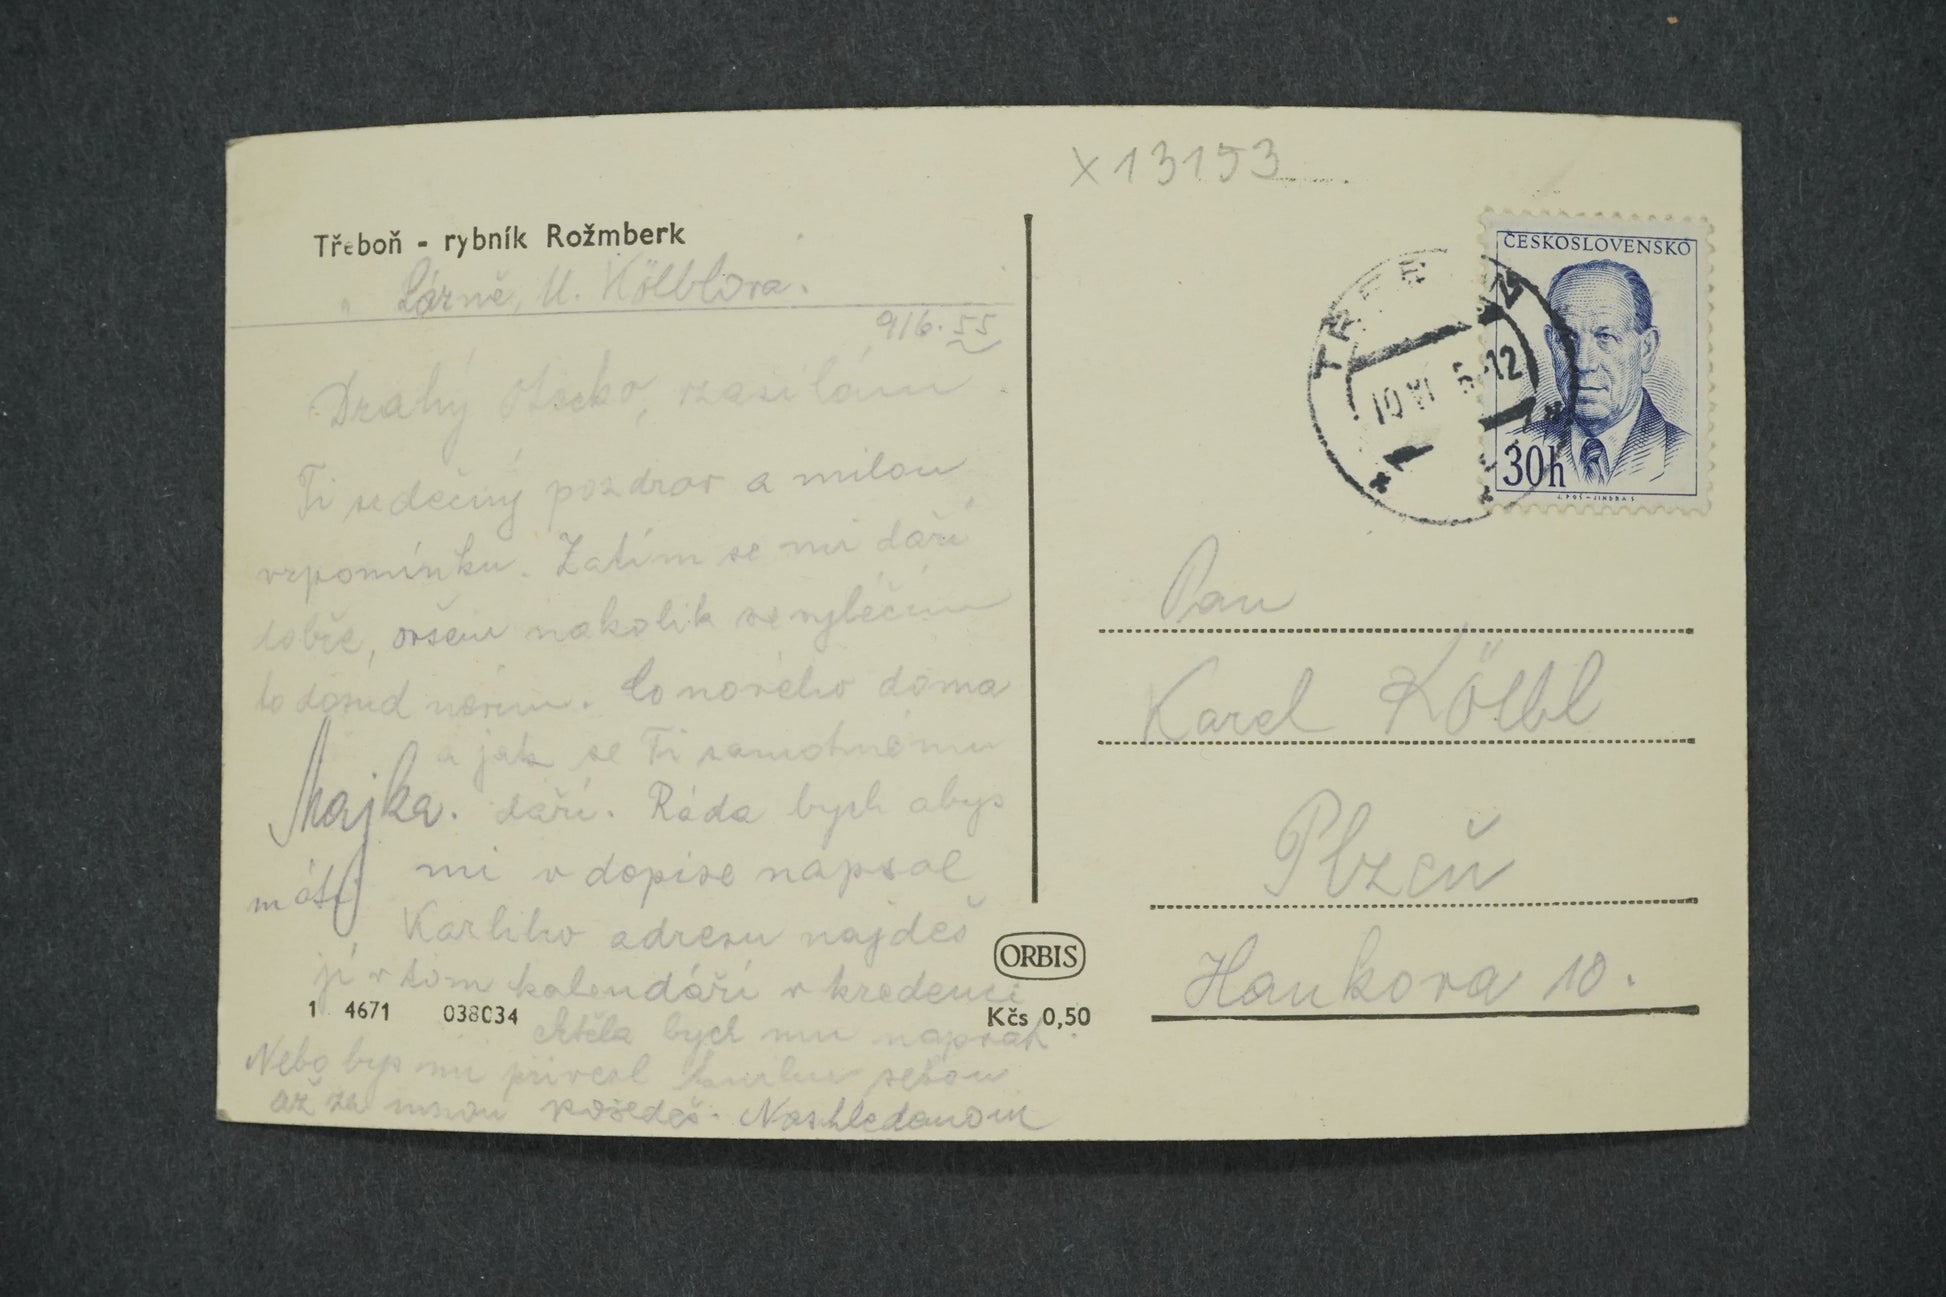 x 13153
Třeboň - rybník Rožmberk
Lázně, M. Kölblova.
9/6. 55
Drahý Otecko, zasílám
Ti sedečný pozdrav a milou
vzpomínku. Zatím se mi daří
dobře, ovšem nakolik se vyléčím
to dosud nevím. Co nového doma
a jak se Ti samotnému
daří. Ráda bych abys
mi v dopise napsal
Karliho adresu najdeš
ji v tom kalendáři v kredenci
chtěla bych mu napsat.
Nebo bys mi přivezl sebou
až za mnou pojedeš. Nashledanou
Majka.
1 4671 038034
ORBIS
Kčs 0,50
ČESKOSLOVENSKO
30h
J. POŠ - JINDRA S.
10 VI 5 -12
Pan
Karel Kölbl
Plzeň
Hankova 10.